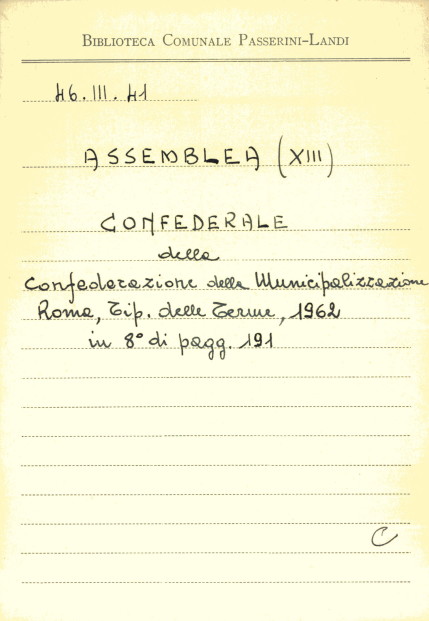 BIBLIOTECA COMUNALE PASSERINI-LANDI
46.III.41
ASSEMBLEA (XIII)
CONFEDERALE
della
Confederazione della Municipalizzazione
Roma, Tip. delle Terme, 1962
in 8° di pagg. 191
C